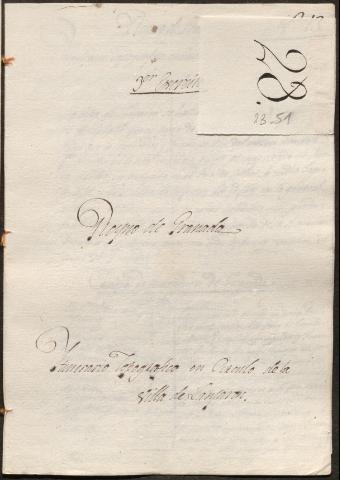 28.
23-51
Reyno de Granada
Itinerario Topografico en Circulo de la
Villa de